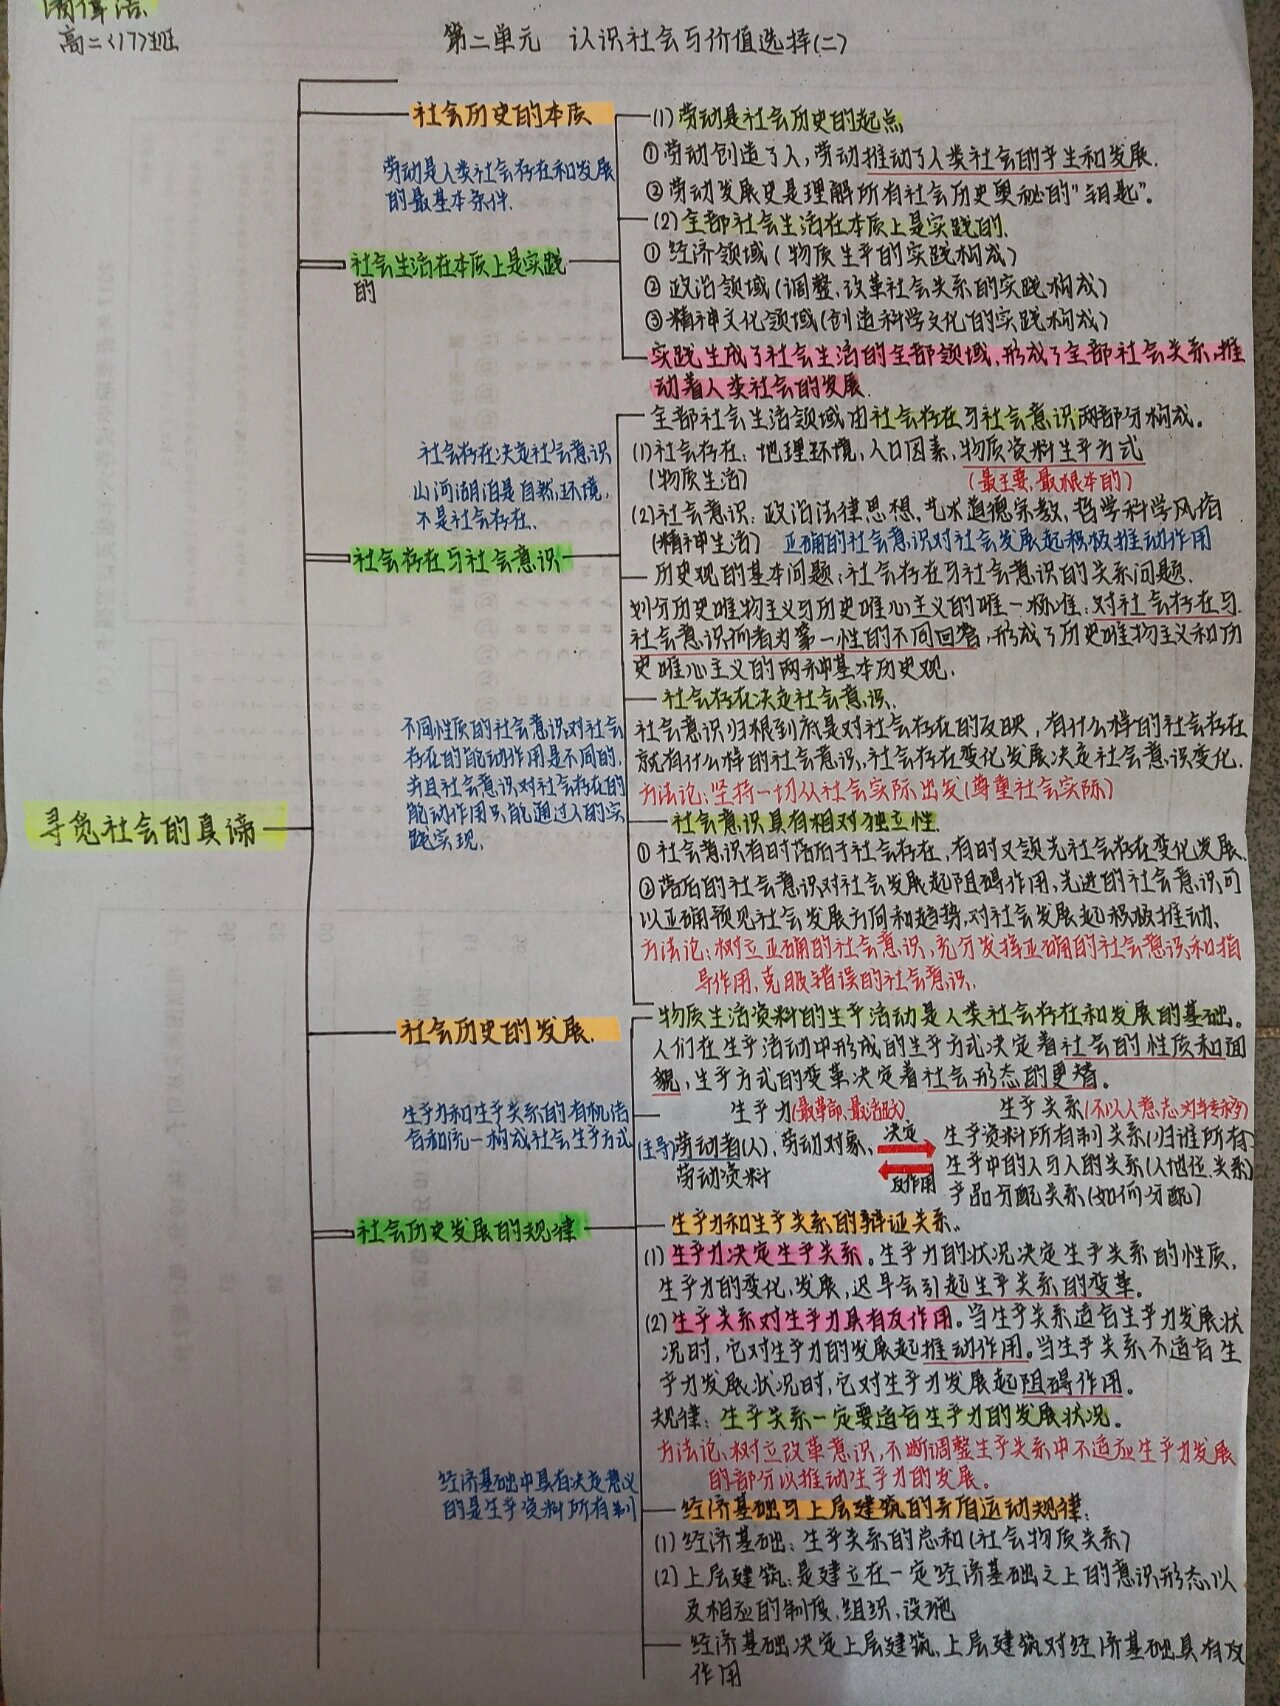 高二(17)班
第二单元 认识社会与价值选择(二)
社会历史的本质
劳动是人类社会存在和发展
的最基本条件.
社会生活在本质上是实践
的
(1)劳动是社会历史的起点
①劳动创造了人,劳动推动了人类社会的产生和发展.
②劳动发展史是理解所有社会历史奥秘的“钥匙”。
(2)全部社会生活在本质上是实践的.
①经济领域(物质生产的实践构成)
②政治领域(调整、改革社会关系的实践构成)
③精神文化领域(创造科学文化的实践构成)
实践生成了社会生活的全部领域,形成了全部社会关系,推
动着人类社会的发展.
社会存在决定社会意识
山河湖泊是自然环境,
不是社会存在.
社会存在与社会意识
全部社会生活领域由社会存在与社会意识两部分构成。
(1)社会存在:地理环境,人口因素,物质资料生产方式
(物质生活) (最主要,最根本的)
(2)社会意识:政治法律思想、艺术道德宗教、哲学科学风俗
(精神生活) 正确的社会意识对社会发展起积极推动作用
历史观的基本问题:社会存在与社会意识的关系问题.
划分历史唯物主义与历史唯心主义的唯一标准:对社会存在与
社会意识何者为第一性的不同回答,形成了历史唯物主义和历
史唯心主义的两种基本历史观.
社会存在决定社会意识.
社会意识归根到底是对社会存在的反映,有什么样的社会存在
就有什么样的社会意识,社会存在变化发展决定社会意识变化.
方法论:坚持一切从社会实际出发(尊重社会实际)
不同性质的社会意识对社会
存在的能动作用是不同的,
并且社会意识对社会存在的
能动作用只能通过人的实
践实现.
寻觅社会的真谛
社会意识具有相对独立性.
①社会意识有时落后于社会存在,有时又领先社会存在变化发展.
②落后的社会意识对社会发展起阻碍作用,先进的社会意识可
以正确预见社会发展方向和趋势,对社会发展起积极推动.
方法论:树立正确的社会意识,充分发挥正确的社会意识和指
导作用,克服错误的社会意识.
社会历史的发展.
物质生活资料的生产活动是人类社会存在和发展的基础。
人们在生产活动中形成的生产方式决定着社会的性质和面
貌,生产方式的变革决定着社会形态的更替。
生产力和生产关系的有机结
合和统一构成社会生产方式
生产力(最革命,最活跃) 生产关系
(主导)劳动者(人)、劳动对象、 决定 生产资料所有制关系(归谁所有)
劳动资料 反作用 生产中的人与人的关系(人地位、关系)
产品分配关系(如何分配)
社会历史发展的规律
生产力和生产关系的辩证关系.
(1)生产力决定生产关系。生产力的状况决定生产关系的性质,
生产力的变化,发展,迟早会引起生产关系的变革。
(2)生产关系对生产力具有反作用。当生产关系适合生产力发展状
况时,它对生产力的发展起推动作用。当生产关系不适合生
产力发展状况时,它对生产力发展起阻碍作用。
规律:生产关系一定要适合生产力的发展状况。
方法论:树立改革意识,不断调整生产关系中不适应生产力发展
的部分以推动生产力的发展。
经济基础中具有决定意义
的是生产资料所有制
经济基础与上层建筑的矛盾运动规律:
(1)经济基础:生产关系的总和(社会物质关系)
(2)上层建筑:是建立在一定经济基础之上的意识形态以
及相应的制度,组织,设施
经济基础决定上层建筑,上层建筑对经济基础具有反
作用